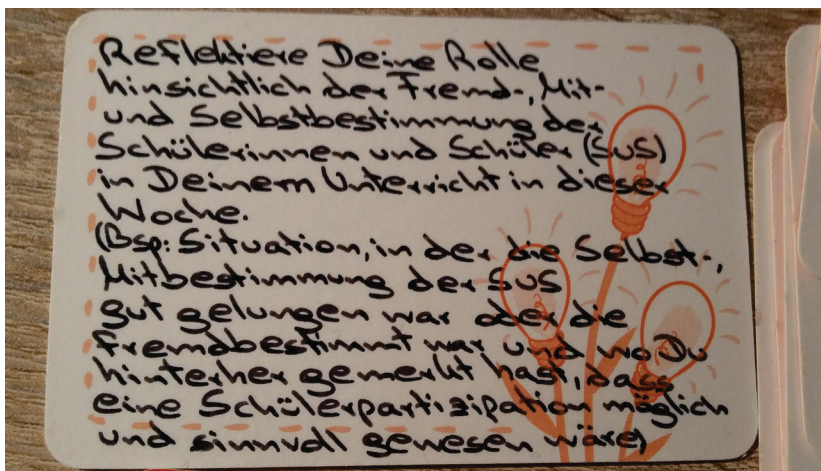 Reflektiere Deine Rolle
hinsichtlich der Fremd-, Mit-
und Selbstbestimmung der
Schülerinnen und Schüler (SuS)
in Deinem Unterricht in dieser
Woche.
(Bsp: Situation, in der die Selbst-,
Mitbestimmung der SuS
gut gelungen war oder die
fremdbestimmt war und wo Du
hinterher gemerkt hast, dass
eine Schülerpartizipation möglich
und sinnvoll gewesen wäre)